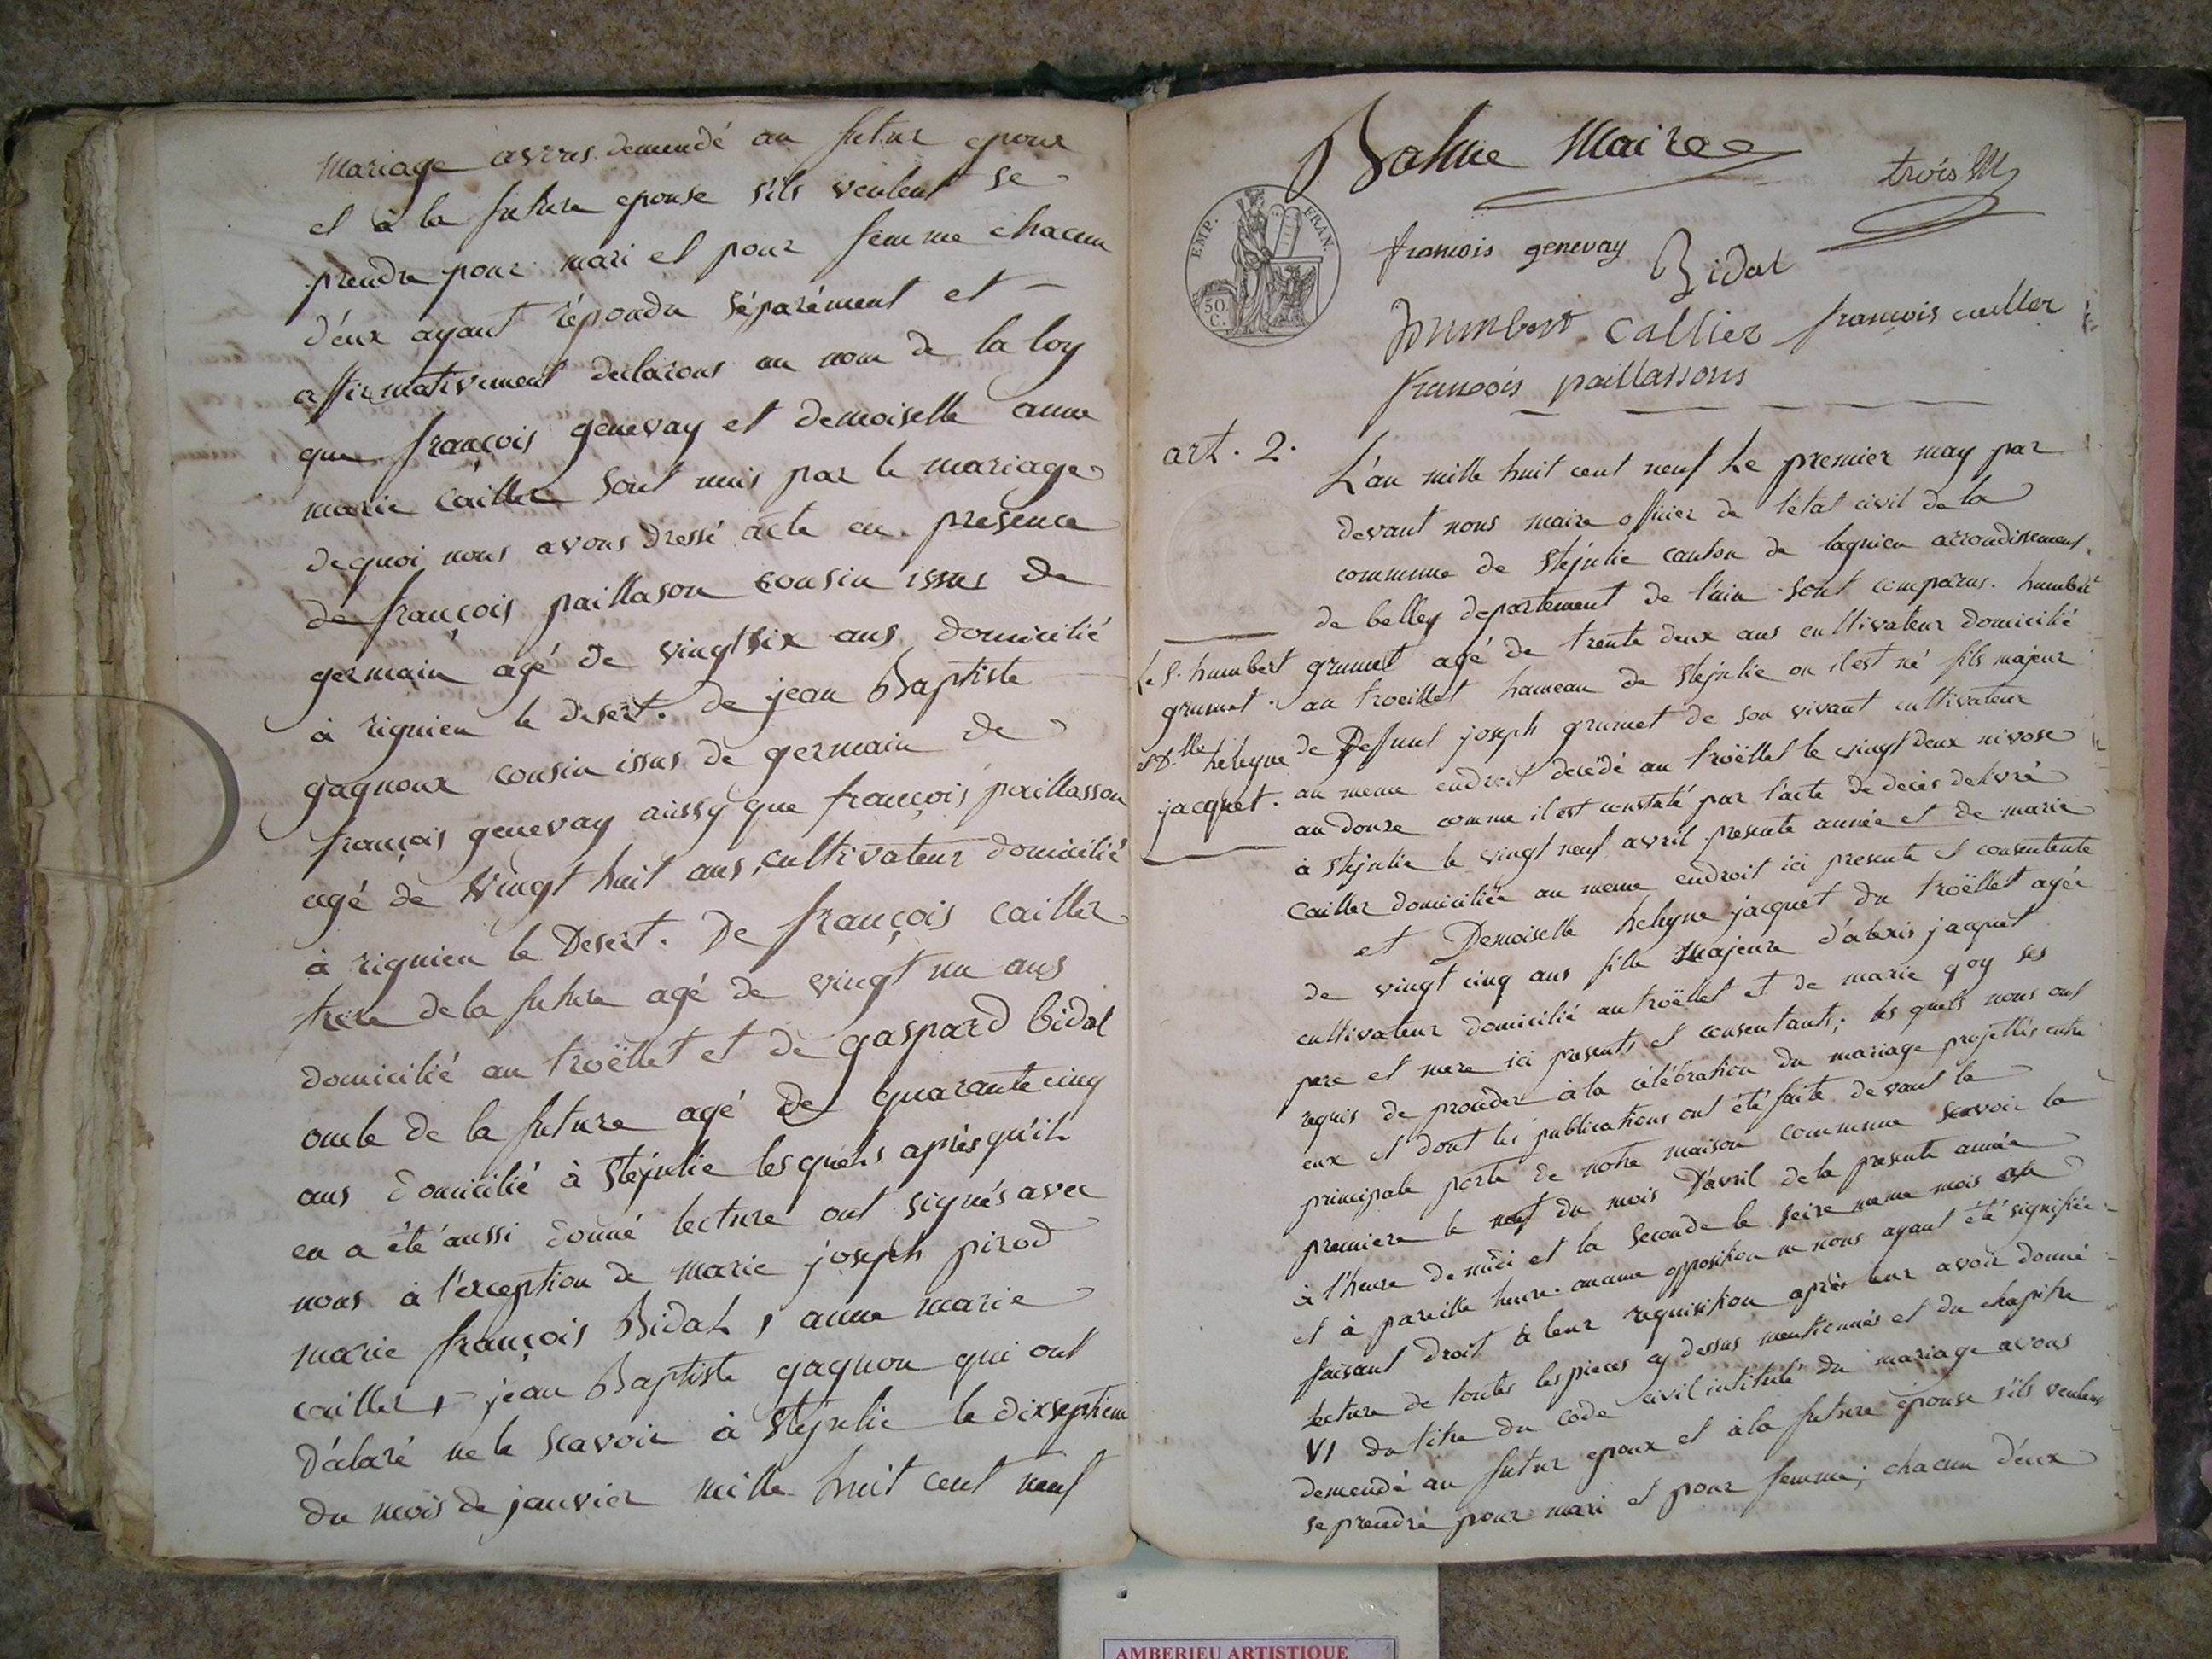 mariage avons demendé au futur epoux
et à la future epouse s'ils veulent se
prendre pour mari et pour femme chacun
d'éux ayant répondu séparément et
affirmativement declarons au nom de la loy
que françois genevay et demoiselle anne
marie cailler sont unis par le mariage
dequoi nous avons dressé acte en presence
de françois paillason cousin issus de
germain agé de vingt six ans domicilié
à rignieu le desert. de jean Baptiste
gagnoux cousin issus de germain de
françois genevay aussy que françois paillasson
agé de vingt huit ans, cultivateur domicilié
à rignieu le Desert. De françois cailler
frere de la future agé de vingt un ans
domicilié au troëllet et de gaspard bidal
oncle de la future agé de quarante cinq
ans domicilié à Stejulie lesquels après qu'il
en a été aussi donné lecture ont signés avec
nous à l'exception de marie joseph pirod
marie françois Bidal, anne marie
cailler, jean Baptiste gagnon qui ont
déclaré ne le scavoir à Stejulie le dixseptieme
du mois de janvier mille huit cent neuf
Maire
francois genevay
Bidal
humbert Callier francois cailler
francois paillassons
EMP. FRAN.
50 C.
art. 2.
L'an mille huit cent neuf Le premier may par
devant nous maire officier de l'état civil de la
commune de Stejulie canton de lagnieu arrondissement
de belley departement de l'ain sont comparus. humbert
Le S. humbert grumet.
et D.lle heleyne jacquet.
grumet agé de trente deux ans cultivateur domicilié
au troëillet hameau de Stejulie ou il est né fils majeur
de Deffunt joseph grumet de son vivant cultivateur
au meme endroit decédé au troëllet le vingt deux nivose
an douze comme il est constaté par l'acte de decès delivré
à Stejulie le vingt neuf avril presente année et de marie
Cailler domiciliée au meme endroit ici presente et consentente
et Demoiselle heleyne jacquet du troëllet agée
de vingt cinq ans fille majeure d'alexis jacquet
cultivateur domicilié au troëllet et de marie goy ses
pere et mere ici presents et consentants; lesquels nous ont
requis de proceder à la célébration du mariage projettés entre
eux et dont les publications ont été faite devant la
principale porte de notre maison commune scavoir la
premiere le neuf du mois D'avril de la presente année
à l'heure de midi et la seconde le seize meme mois
et à pareille heure. aucune opposition ne nous ayant été signifiée
faisant droit à leur requisition après leur avoir donné
lecture de toutes les pieces cy dessus mentionnés et du chapitre
VI du titre du code civil intitulé du mariage avons
demendé au futur epoux et à la future épouse s'ils veulent
se prendre pour mari et pour femme; chacun d'éux
AMBERIEU ARTISTIQUE